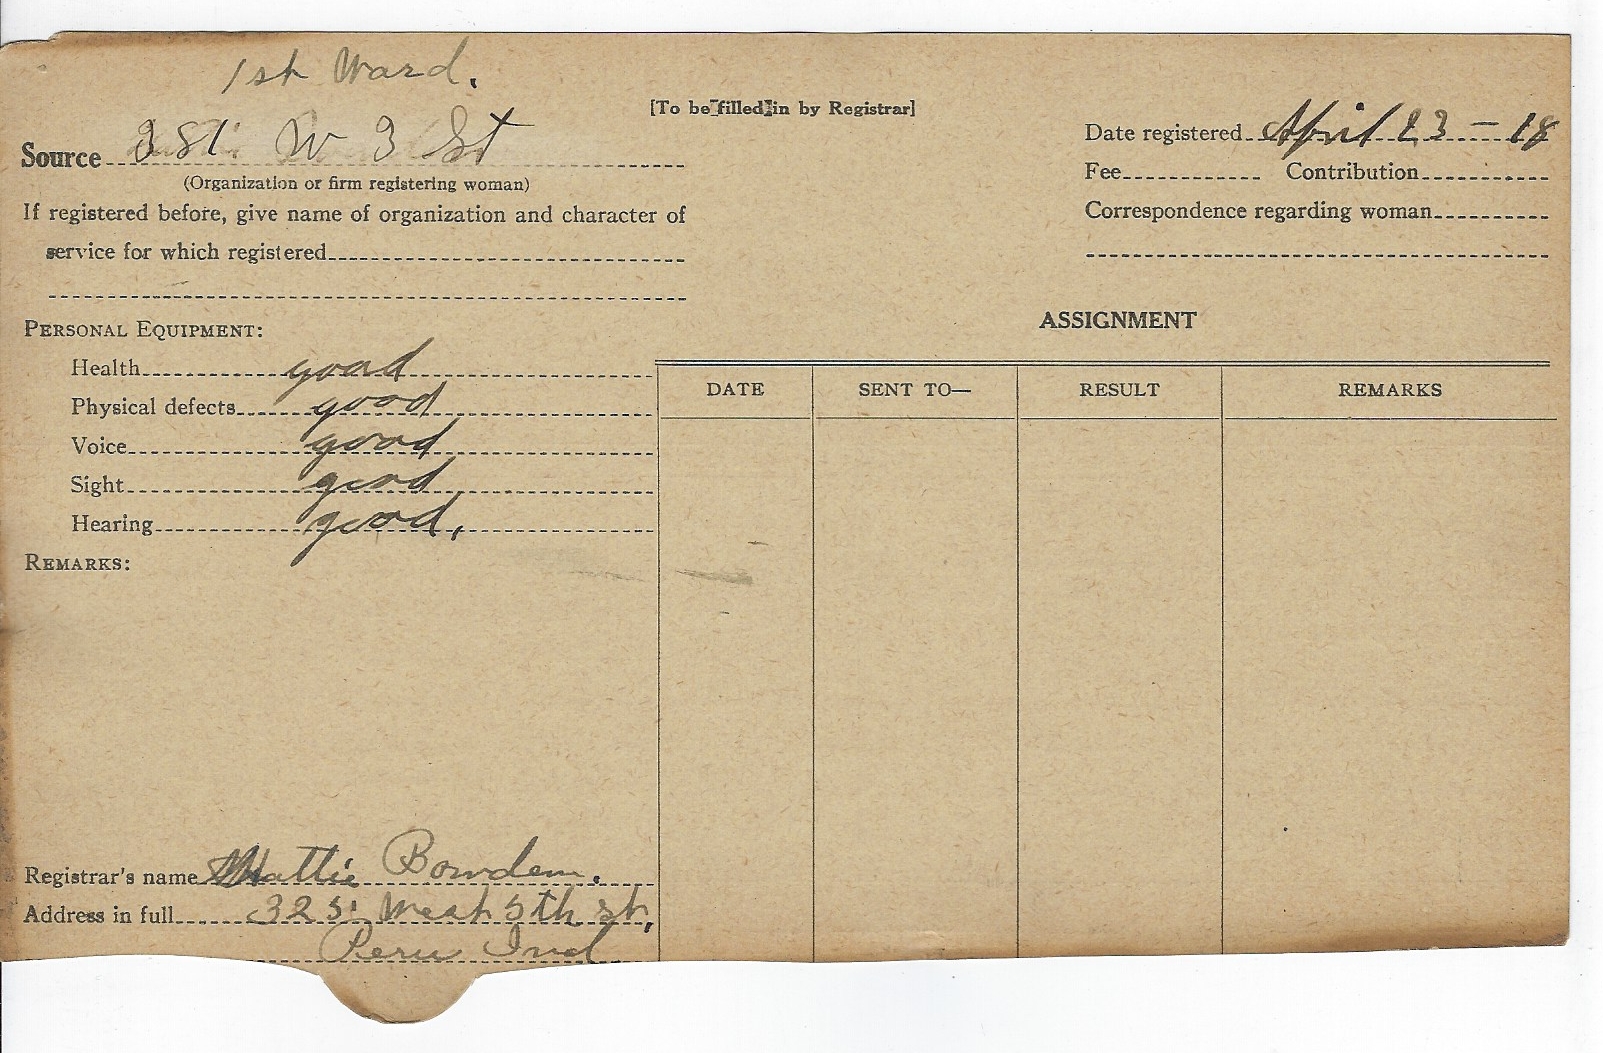 1st Ward.
[To be filled in by Registrar]
Source 381 W 3 St
(Organization or firm registering woman)
Date registered April 23 - 18
Fee Contribution
If registered before, give name of organization and character of
Correspondence regarding woman
service for which registered
PERSONAL EQUIPMENT:
ASSIGNMENT
Health good
DATE SENT TO— RESULT REMARKS
Physical defects good
Voice good
Sight good
Hearing good.
REMARKS:
Registrar's name Mattie Bowden.
Address in full West 5th st,
Peru Ind